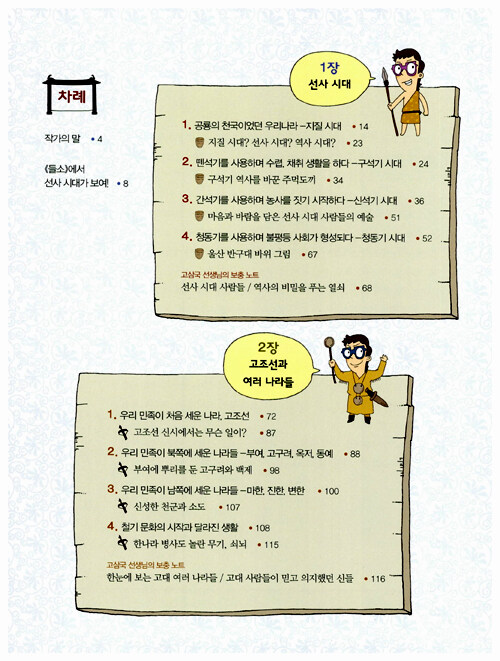 차례
작가의 말 • 4
《들소》에서
선사 시대가 보여! • 8
1장
선사 시대
1. 공룡의 천국이었던 우리나라 –지질 시대 • 14
지질 시대? 선사 시대? 역사 시대? • 23
2. 뗀석기를 사용하며 수렵, 채취 생활을 하다 –구석기 시대 • 24
구석기 역사를 바꾼 주먹도끼 • 34
3. 간석기를 사용하며 농사를 짓기 시작하다 –신석기 시대 • 36
마음과 바람을 담은 선사 시대 사람들의 예술 • 51
4. 청동기를 사용하며 불평등 사회가 형성되다 –청동기 시대 • 52
울산 반구대 바위 그림 • 67
고삼국 선생님의 보충 노트
선사 시대 사람들 / 역사의 비밀을 푸는 열쇠 • 68
2장
고조선과
여러 나라들
1. 우리 민족이 처음 세운 나라, 고조선 • 72
고조선 신시에서는 무슨 일이? • 87
2. 우리 민족이 북쪽에 세운 나라들 –부여, 고구려, 옥저, 동예 • 88
부여에 뿌리를 둔 고구려와 백제 • 98
3. 우리 민족이 남쪽에 세운 나라들 –마한, 진한, 변한 • 100
신성한 천군과 소도 • 107
4. 철기 문화의 시작과 달라진 생활 • 108
한나라 병사도 놀란 무기, 쇠뇌 • 115
고삼국 선생님의 보충 노트
한눈에 보는 고대 여러 나라들 / 고대 사람들이 믿고 의지했던 신들 • 116